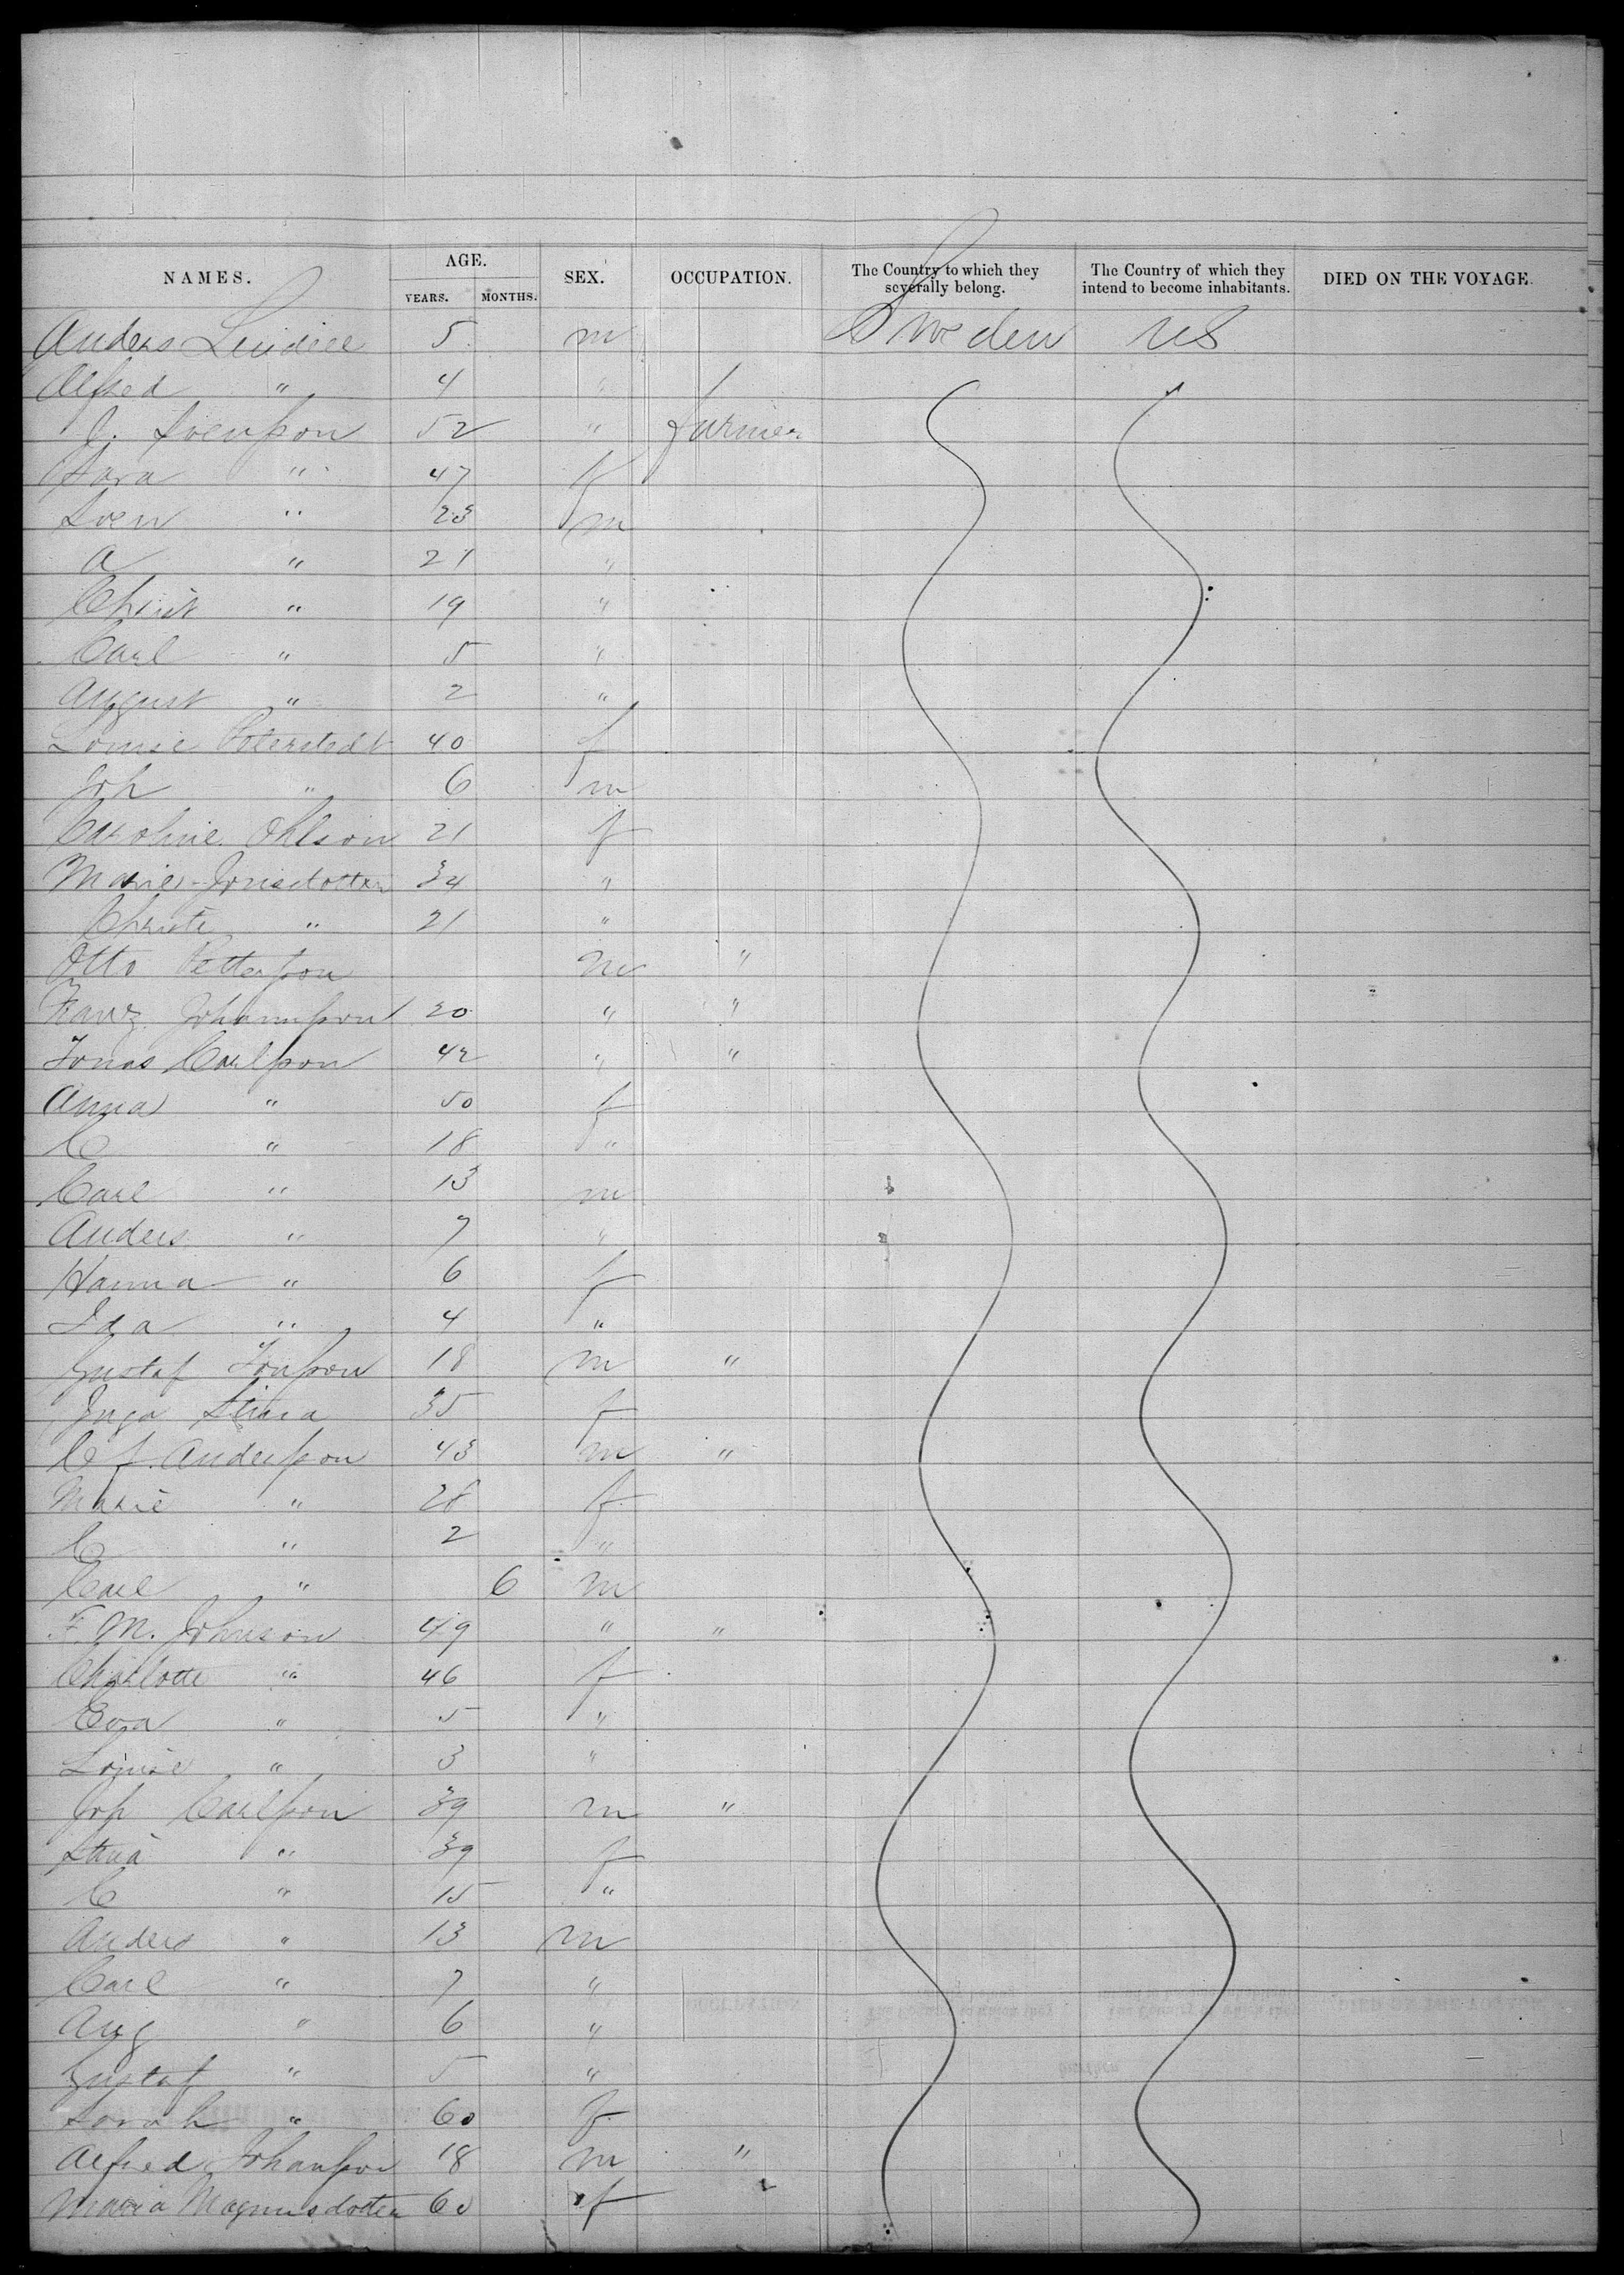 NAMES. AGE. SEX. OCCUPATION. The Country to which they severally belong. The Country of which they intend to become inhabitants. DIED ON THE VOYAGE.
YEARS. MONTHS.
Anders 5 m Sweden US
Alfred " 4 "
J. Svensson 52 " farmer
Sara " 47 f
Sven " 23 m
A " 21 "
Christ " 19 "
Carl " 5 "
August " 2 "
Louise Peterstedt 40 f
Joh " 6 m
Caroline Ohlson 21 f
Marie Jonsdotter 34 "
Christe " 21 "
Otto Pettersson m "
Franz Johannsson 20 " "
Jonas Carlsson 42 " "
Anna " 50 f
C " 18 "
Carl " 13 m
Anders " 7 "
Hanna " 6 f
Ida " 4 "
Gustaf Jonsson 18 m "
Inga Stina 35 f
C J. Andersson 43 m "
Marie " 28 f
C " 2 "
Carl " 6 m
F. M. Johnson 49 " "
Charlotte " 46 f
Eva " 5 "
Louise " 3 "
Joh Carlsson 39 m "
Stina " 39 f
C " 15 "
Anders " 13 m
Carl " 7 "
Aug " 6 "
Gustaf " 5 "
Sarah " 60 f
Alfred Johansson 18 m "
Maria Magnusdotter 60 f